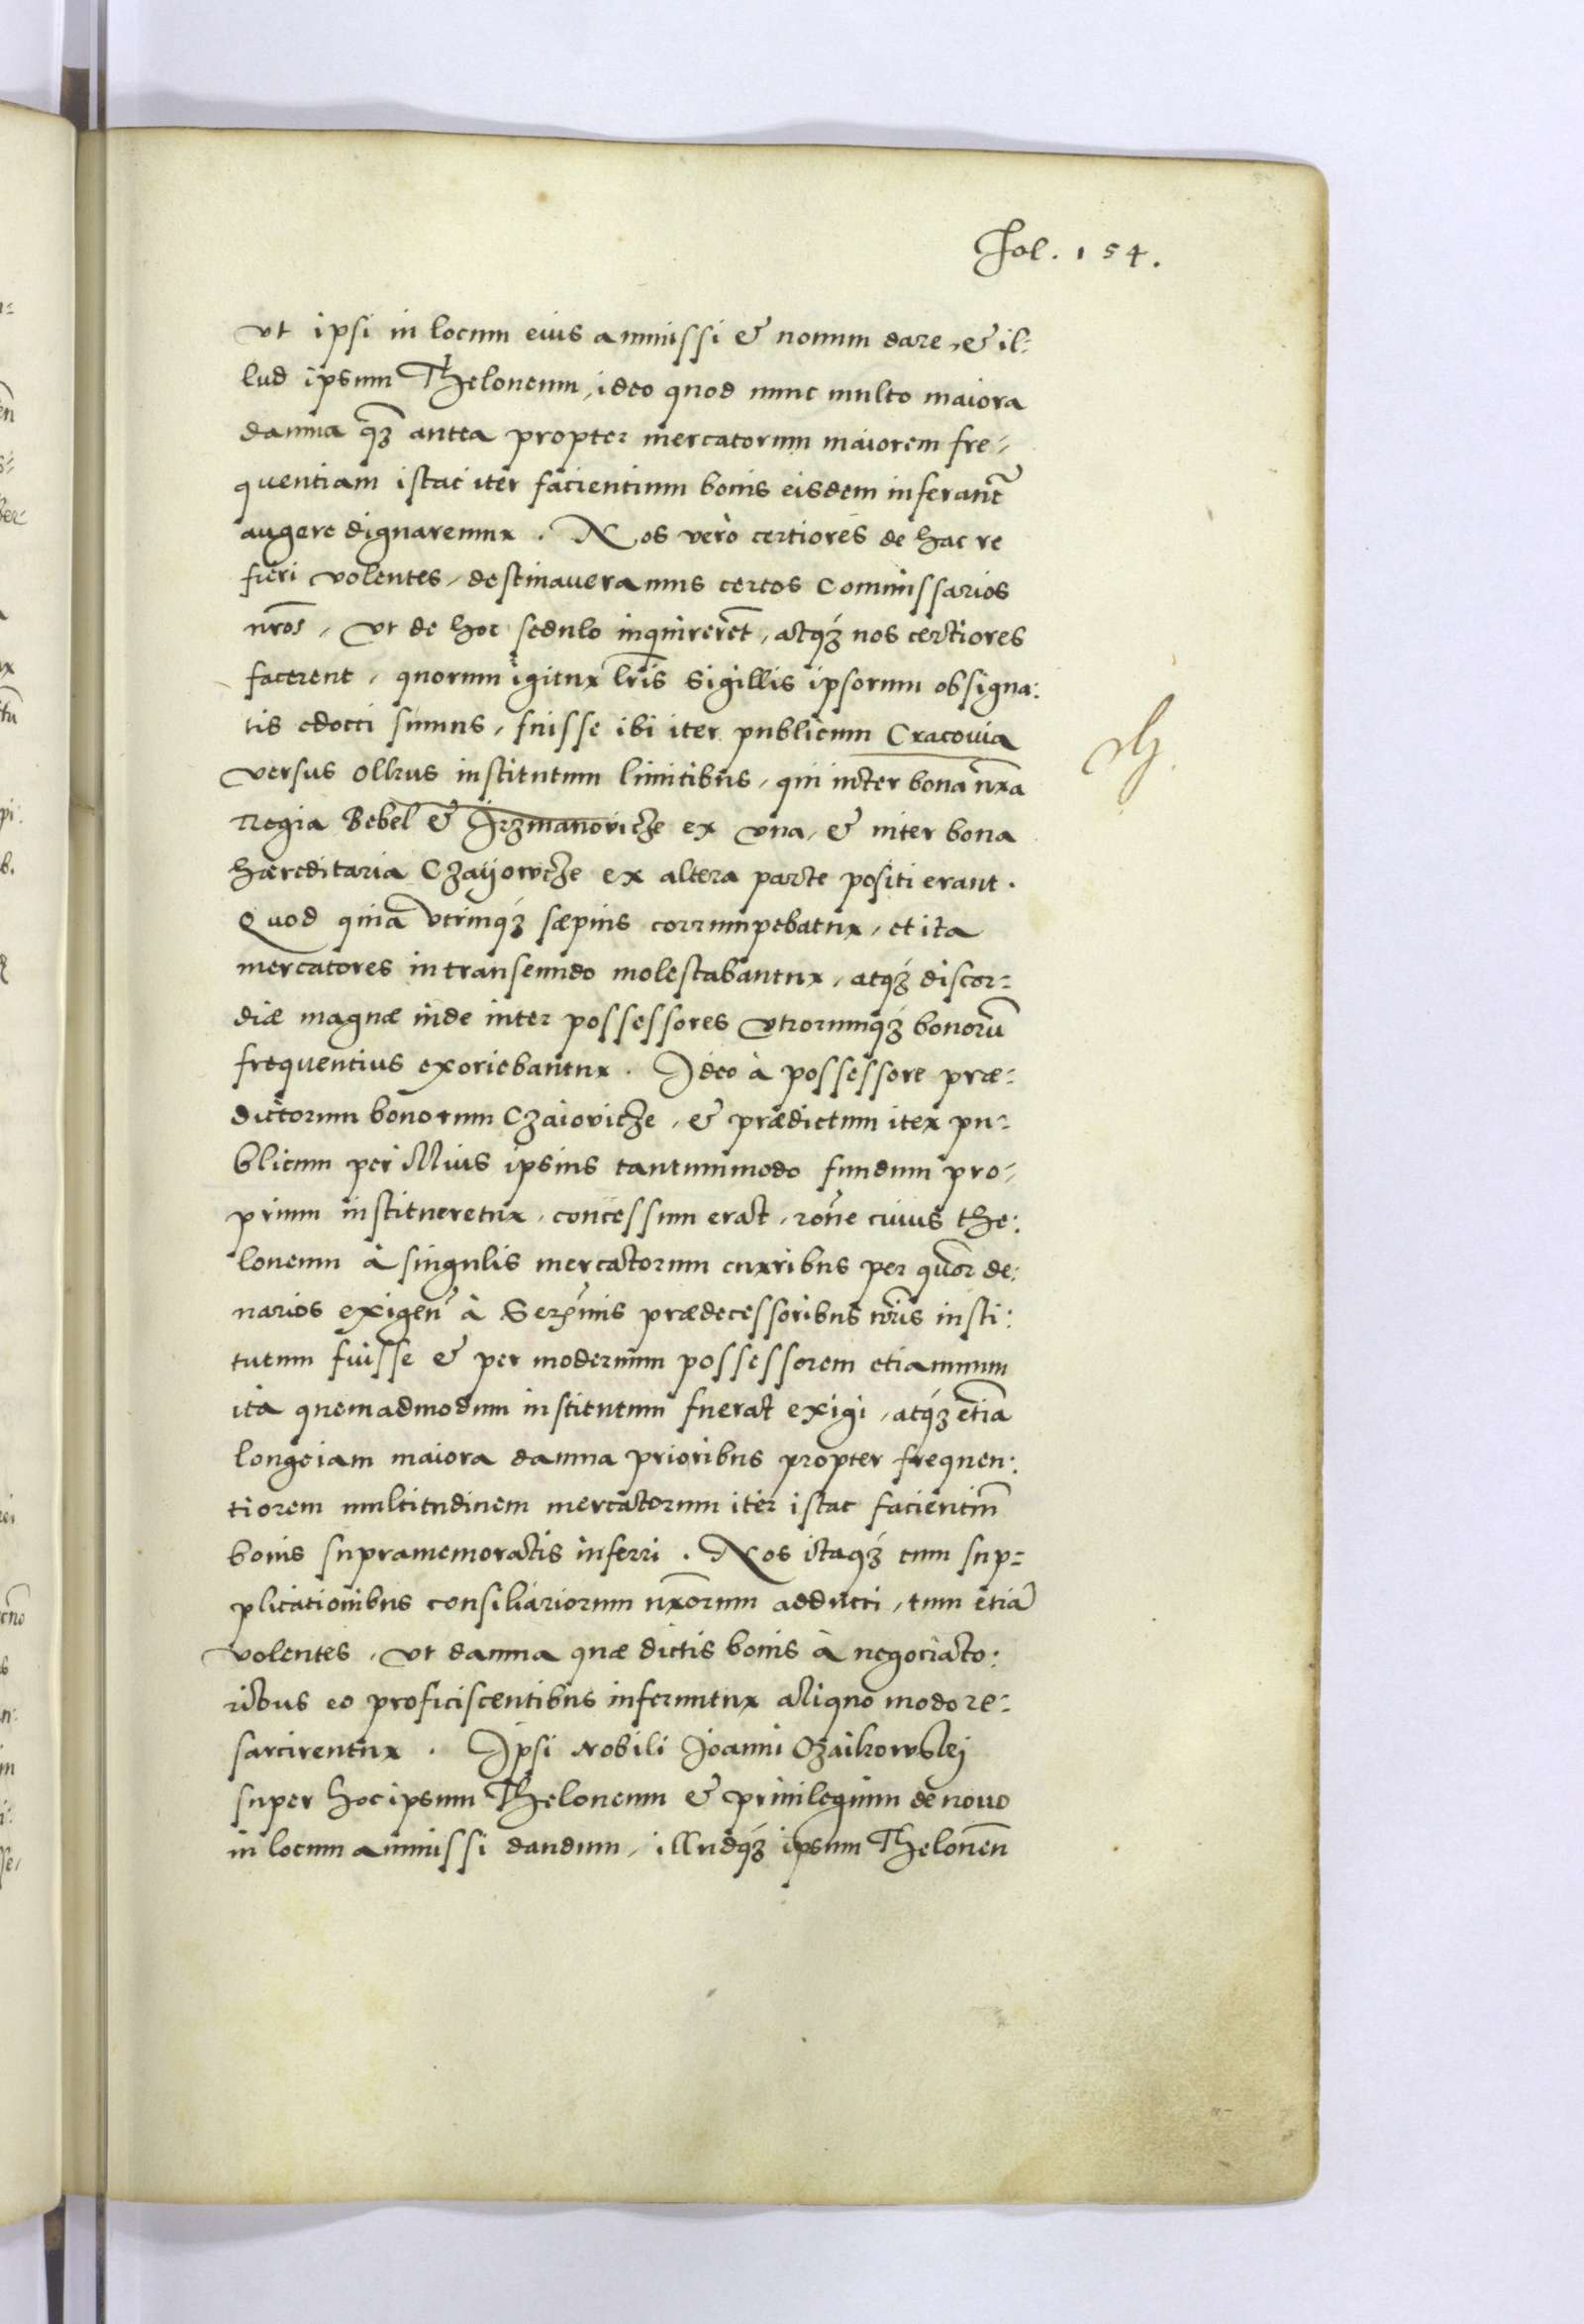 Fol. 154.
vt ipsi in locum eius ammissi & nouum dare, & il:
lud ipsum Theloneum, ideo quod nunc multo maiora
damna q̃ꝫ antea propter mercatorum maiorem fre-
quentiam istac iter facientium bonis eisdem inferant̃
augere dignaremur. Nos verò certiores de hac re
fieri volentes, destinaueramus certos Commissarios
nr̃os, vt de hoc sedulo inquirerẽt, atqꝫ nos certiores
facerent, quorum igitur lr̃is sigillis ipsorum obsigna:
tis edocti sumus, fuisse ibi iter publicum Cracouia
versus Olkus institutum limitibus, qui inter bona nr̃a
Regia Bebel & Jrzmanovicze ex vna, & inter bona
hæreditaria Czaijowcze ex altera parte positi erant.
Quod quia vtrinqꝫ sæpius corrumpebatur, et ita
mercatores in transeundo molestabantur, atqꝫ discor:
diæ magnæ inde inter possessores vtrorumqꝫ bonorũ
frequentius exoriebantur. Ideo à possessore præ:
dictorum bonorum Czaiovicze, & prædictum iter pu:
blicum per illius ipsius tantummodo fundum pro-
prium institueretur, concessum erat, rõne cuius the:
loneum à singulis mercatorum curribus per quor̃ de:
narios exigen̄ à Serẽmis prædecessoribus nr̃is insti:
tutum fuisse & per modernum possessorem etiamnum
ita quemadmodum institutum fuerat exigi, atqꝫ etiã
longe iam maiora damna prioribus propter frequen:
tiorem multitudinem mercatorum iter istac facientiũ
bonis supramemoratis inferri. Nos itaqꝫ cum sup:
plicationibus consiliariorum nr̃orum adducti, tum etiã
volentes, vt damna quæ dictis bonis à negociato:
ribus eo proficiscentibus inferuntur aliquo modo re:
sarcirentur. Ipsi Nobili Joanni Czaikowskij
super hoc ipsum Theloneum & priuilegium de nouo
in locum ammissi dandum, illudqꝫ ipsum Theloneũ